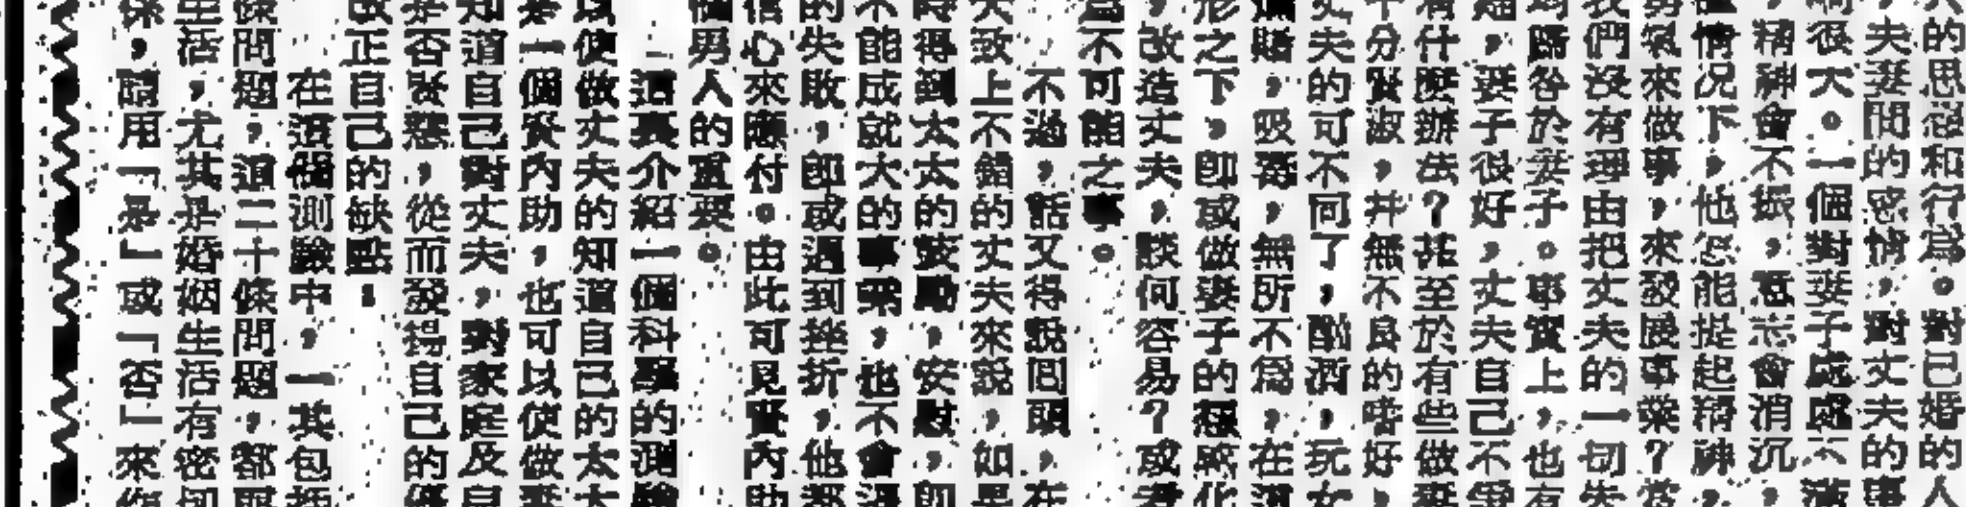 的思想和行為。對已婚的人
，夫妻間的感情，對丈夫的事
很大。一個對妻子處處不滿
，精神會不振，意志會消沉，
情況下，他怎能提起精神，
來做事，來發展事業？當
我們沒有理由把丈夫的一切失
歸咎於妻子。事實上，也有
，妻子很好，丈夫自己不
有什麼辦法？甚至於有些做妻
十分賢淑，并無不良的嗜好，
丈夫的可不同了，酗酒，玩女
賭，吸毒，無所不為，在這
形之下，卽或做妻子的
，改造丈夫，談何容易？或者
為不可能之事。
不過，話又得說回頭，在
大致上不錯的丈夫來說，如果
時得到太太的鼓勵，安慰，卽
不能成就大的事業，也不會
的失敗，卽或遇到挫折，他都
信心來應付。由此可見賢內助
個男人的重要。
這裏介紹一個科學的測驗
以使做丈夫的知道自己的太太
是一個賢內助，也可以使做妻
知道自己對丈夫，對家庭及自
是否賢慧，從而發揚自己的優
改正自己的缺點：
在這個測驗中，一共包括
條問題，這二十條問題，都
生活，尤其是婚姻生活有密切
係，請用「是」或「否」來作